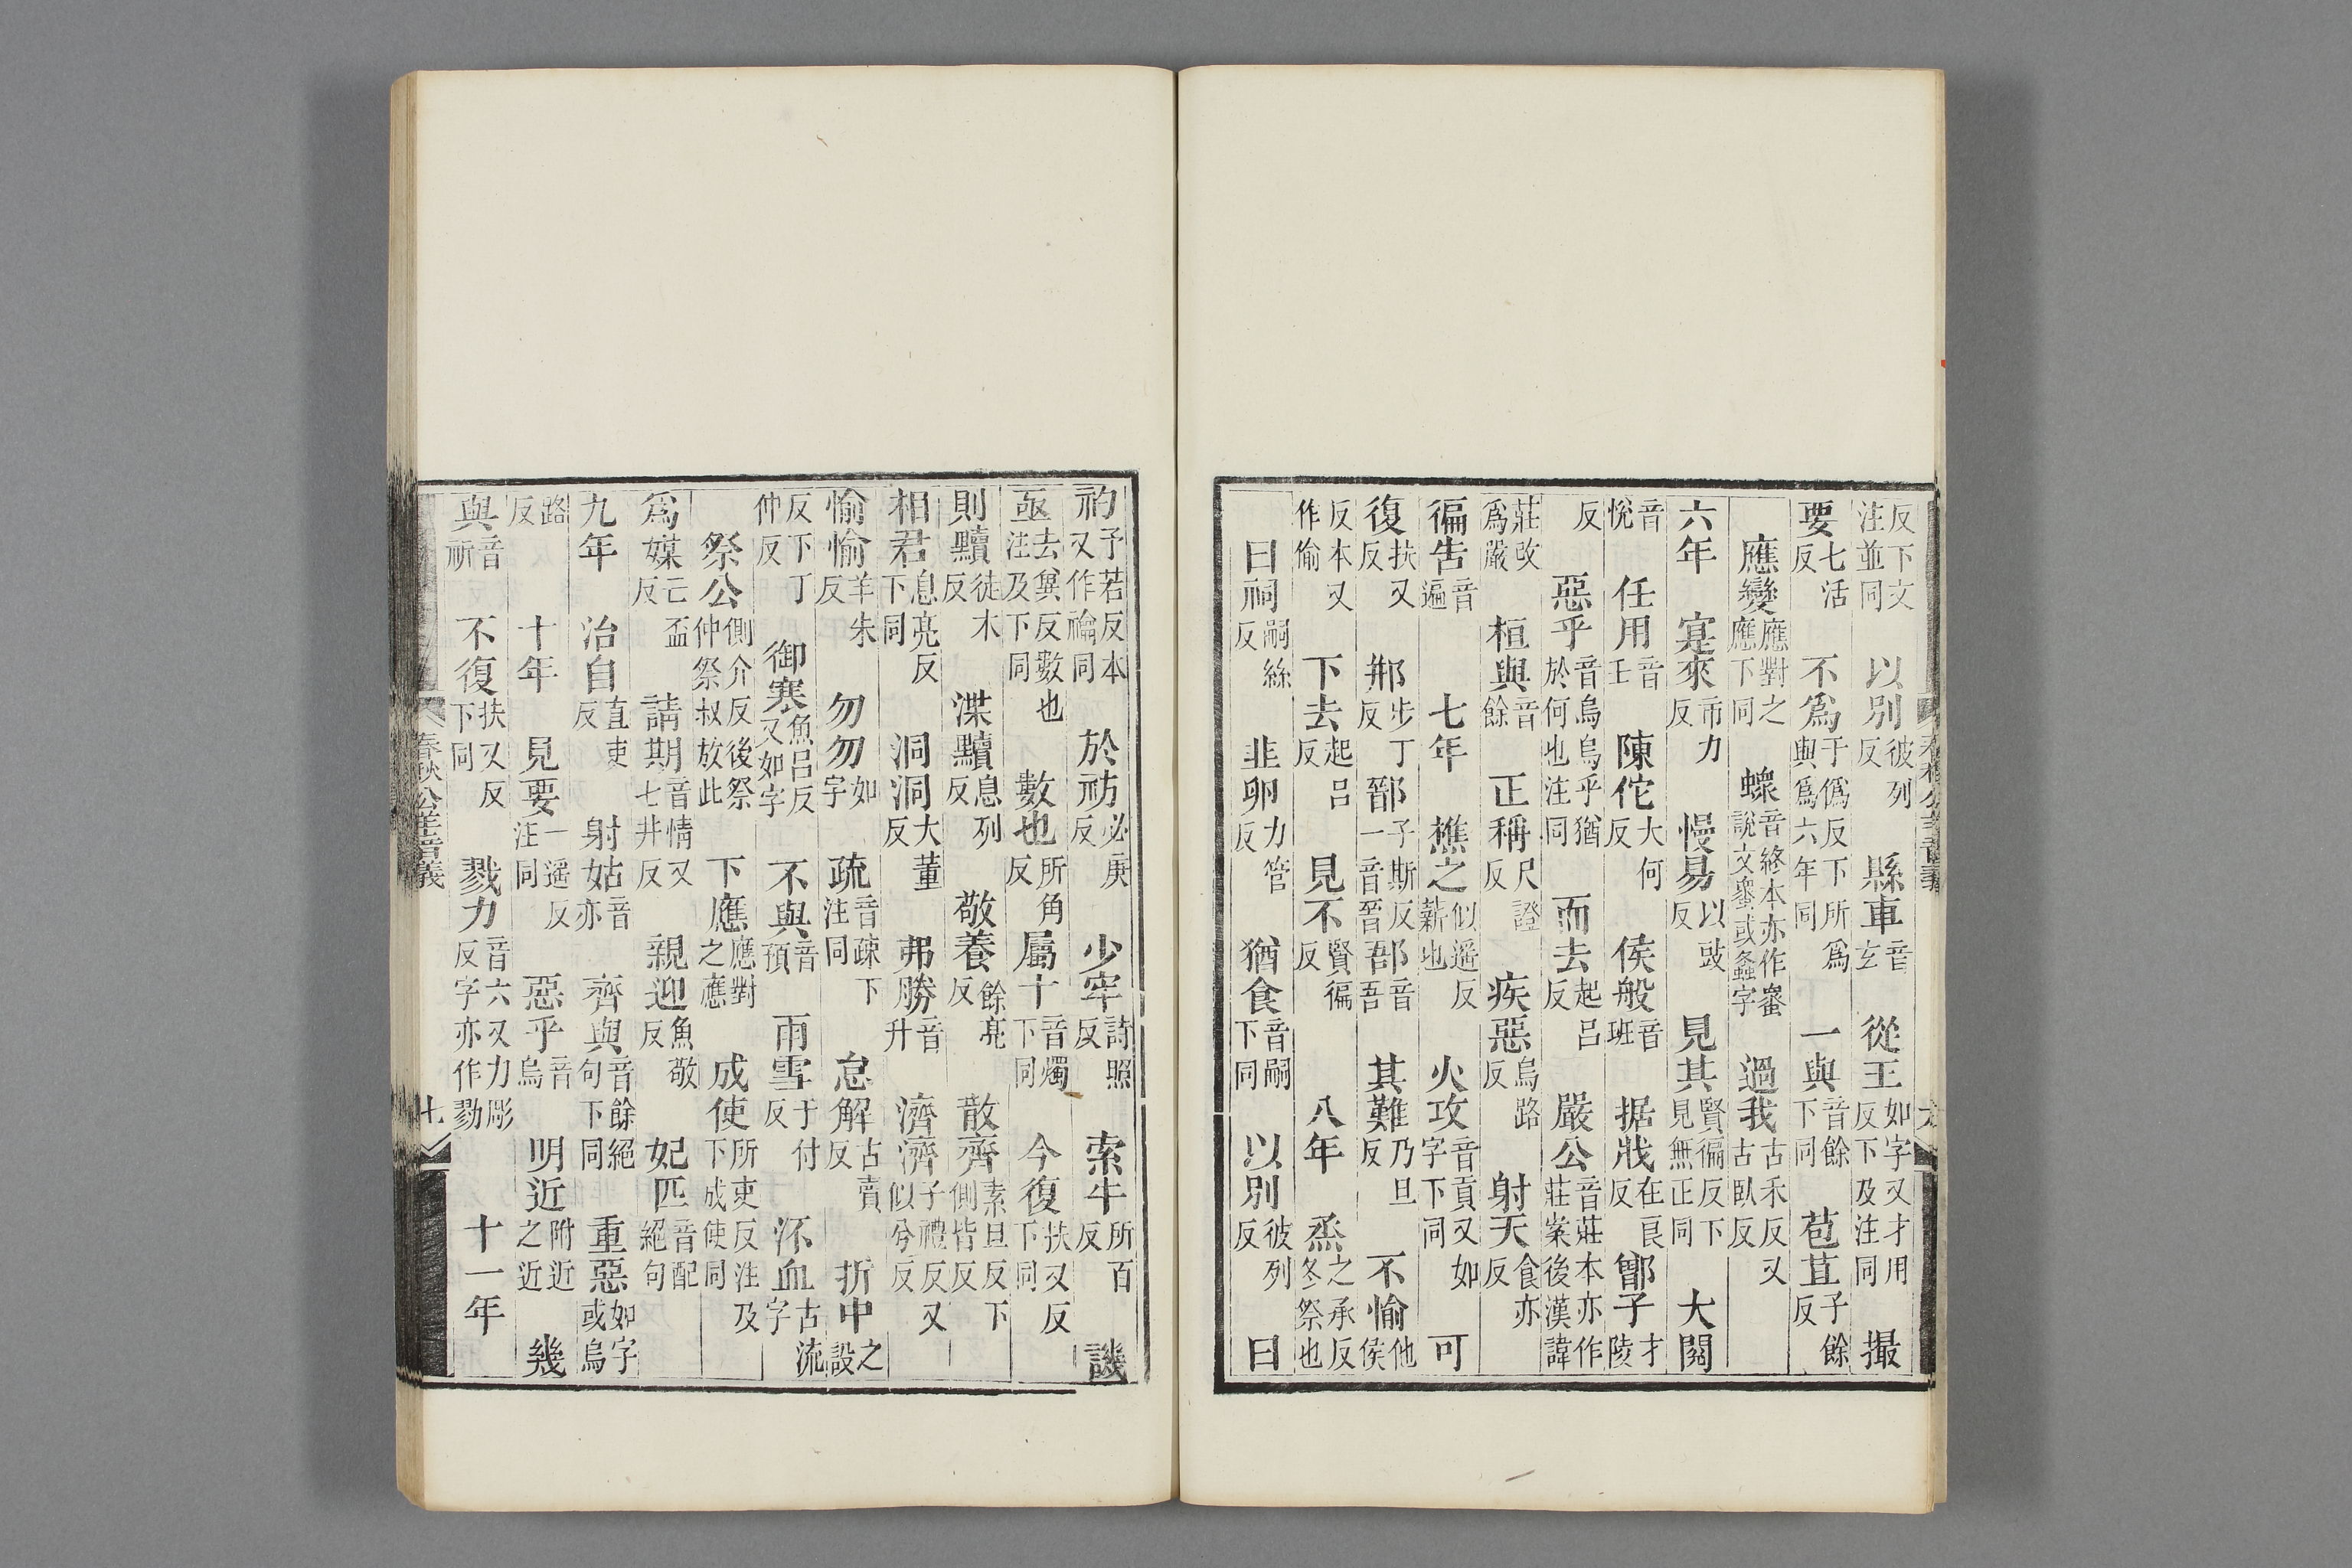 反下文注並同以別彼列反縣車音玄從王如字又才用反下及注同撮
要七活反不爲于僞反下所爲與爲六年同一與音餘下同苞苴子餘反
應變應對之應下同音終本亦作說文或螽字過我古禾反又古臥反
六年寔來市力反慢易以豉反見其賢徧反下見無正同大閱
音悅任用音壬陳佗大何反侯般音班据戕在良反鄫子才陵
反惡乎音烏烏乎猶於何也注同而去起呂反嚴公音莊本亦作莊案後漢諱
莊改爲嚴桓與音餘正稱尺證反疾惡烏路反射天食亦反
徧告音遍七年樵之似遙反薪也火攻音貢又如字下同可
復扶又反邢步丁反鄑子斯反一音晉郚音吾其難乃旦反不愉他侯
反本又作偷下去起呂反見不賢徧反八年烝之承反冬祭也
曰祠嗣絲反韭卵力管反猶食音嗣下同以別彼列反曰
礿予若反本又作禴同於祊必庚反少牢詩照反索牛所百反譏
亟去冀反數也注及下同數也所角反屬十音燭下同今復扶又反下同
則黷徒木反渫黷息列反敬養餘亮反散齊素旦反下側皆反
相君息亮反下同洞洞大董反弗勝音升濟濟子禮反又似兮反
愉愉羊朱反勿勿如字疏音疎下注同怠解古賣反折中之設
反下丁仲反御寒魚呂反又如字不與音預雨雪于付反㳅血古流字
祭公側介反後祭仲祭叔放此下應應對之應成使所吏反注及下成使同
爲媒亡盃反請期音情又七井反親迎魚敬反妃匹音配絕句
九年治自直吏反射姑音亦齊與音餘絕句下同重惡如字或烏
路反十年見要一遙反注同惡乎音烏明近附近之近幾
與音祈不復扶又反下同戮力音六又力彫反字亦作勠十一年
春秋公羊音義
七